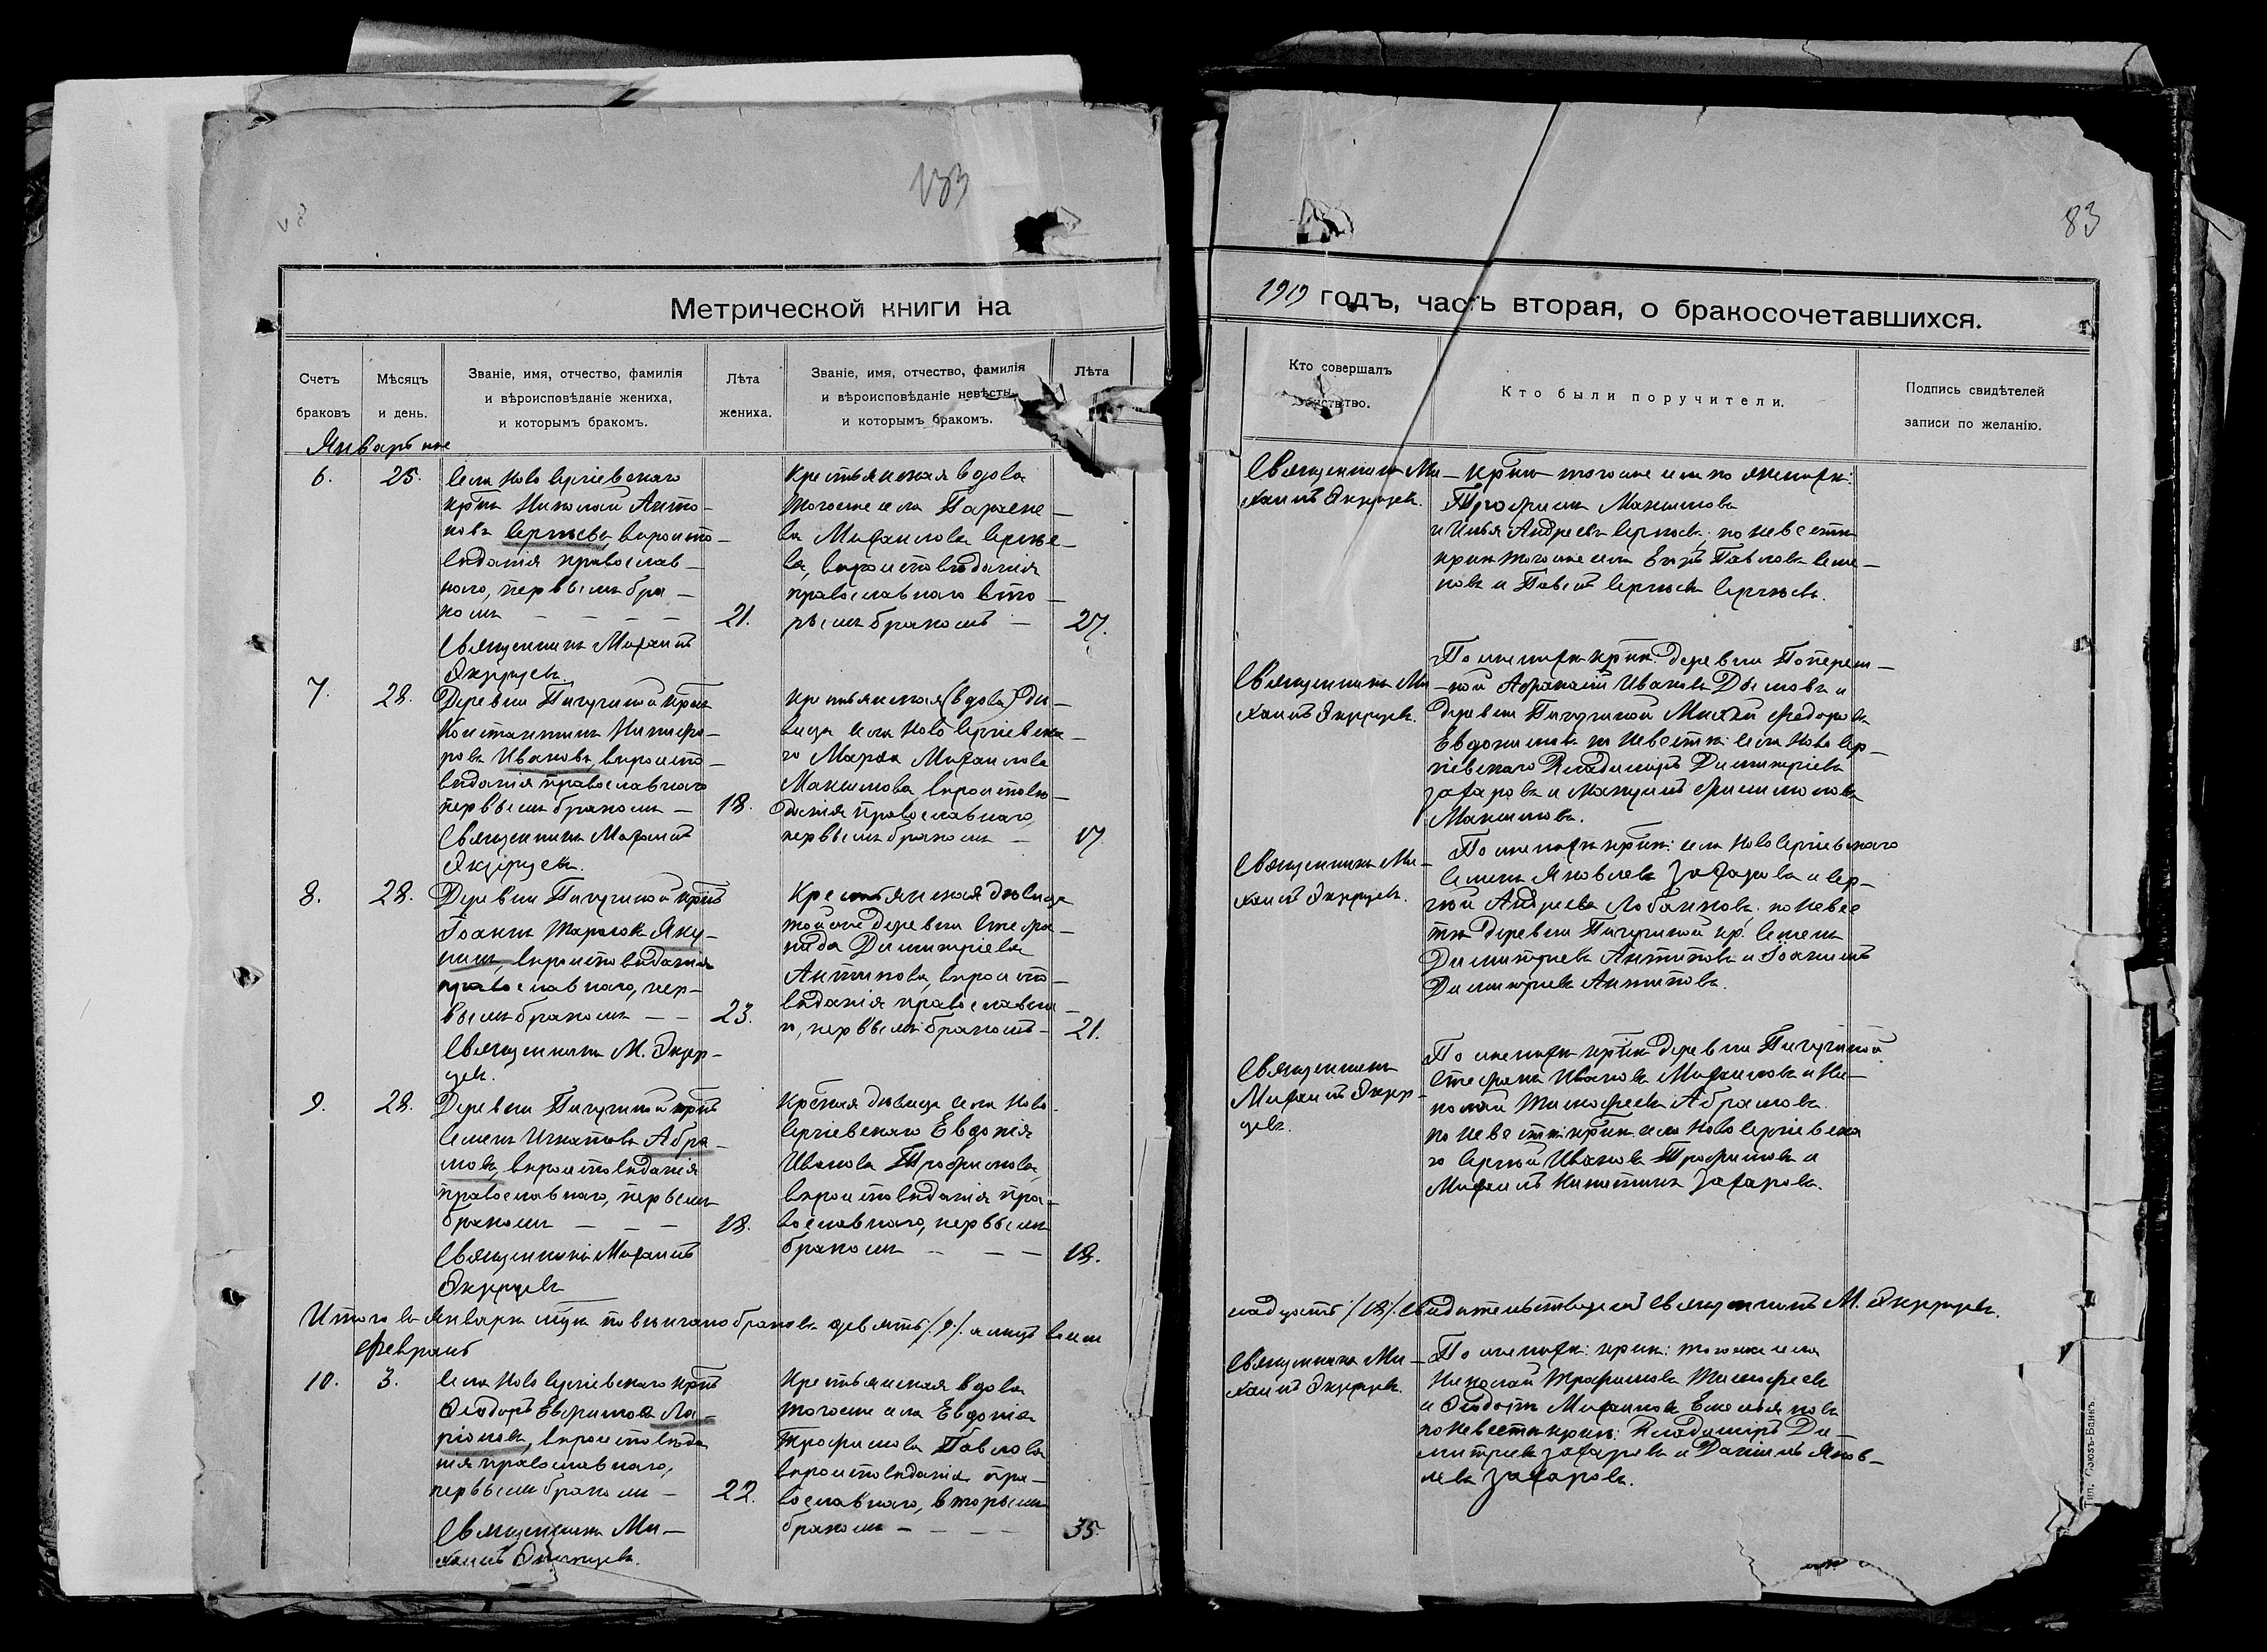 133
83
Метрической книги на
1919 годъ, часть вторая, о бракосочетавшихся.
Счетъ браковъ
Мѣсяцъ и день.
Званіе, имя, отчество, фамилія
и вѣроисповѣданіе жениха,
и которымъ бракомъ.
Лѣта
жениха.
Званіе, имя, отчество, фамилія
и вѣроисповѣданіе невѣсты,
и которымъ бракомъ.
Лѣта
Кто совершалъ
Кто были поручители.
Подпись свидѣтелей
записи по желанію.
Январь
6.
25.
Села Ново Сергіевскаго
крнъ Николай Анто-
новъ Сергѣевъ, вѣроиспо-
вѣданія православ-
наго, первымъ бра-
комъ
21.
Священникъ Михаилъ
Крестьянская вдова
тогоже села Параске-
ва Михаилова Сергѣе-
ва, вѣроисповѣданія
православнаго вто-
рымъ бракомъ
27.
Священникъ Ми-
хаилъ
крнъ тогоже села по женихѣ:
Трофимъ Максимовъ
и Илья Андреевъ Сергѣевъ по невѣстѣ
крнъ тогоже села Павловъ Семе-
новъ и Павелъ Сергѣевъ Сергѣевъ.
7.
28.
Деревни Пичугиной крнъ
Константинъ Никифо-
ровъ Ивановъ, вѣроиспо-
вѣданія православнаго
первымъ бракомъ
18.
Священникъ Михаилъ
Крестьянская (вдова) дѣ-
вица села Ново Сергіевска-
го Марѳа Михаилова
Максимова, вѣроисповѣ-
данія православнаго,
первымъ бракомъ
17
Священникъ Ми-
хаилъ
По женихѣ крнъ деревни Попереч-
ной Ивановъ и
деревни Пичугиной Федоровъ
Евдокимовъ по невѣстѣ: села Ново Сер-
гіевскаго Владиміръ Димитріевъ
Захаровъ и Филимоновъ
Максимовъ.
8.
28.
Деревни Пичугиной крнъ
Іоаннъ Тарасовъ Яку-
нинъ, вѣроисповѣданія
православнаго, пер-
вымъ бракомъ
23.
Священникъ М.
Крестьянская дѣвица
тойже деревни Стефа-
нида Димитріева
Антипова, вѣроиспо-
вѣданія православна-
го, первымъ бракомъ
21.
Священникъ Ми-
хаилъ
По женихѣ крнъ: села Ново Сергіевскаго
Семенъ Яковлевъ Захаровъ и Сер-
гѣй Андреевъ Лобановъ, по невѣс
тѣ деревни Пичугиной кр. Семенъ
Димитріевъ Антиповъ и Іоаннъ
Димитріевъ Антиповъ.
9.
28.
Деревни Пичугиной крнъ
Семенъ Игнатовъ Абра-
мовъ, вѣроисповѣданія
православнаго, первымъ
бракомъ
18.
Священникъ Михаилъ
Крская дѣвица села Ново
Сергіевскаго Евдокія
Иванова Трофимова,
вѣроисповѣданія пра-
вославнаго, первымъ
бракомъ
18.
Священникъ
Михаилъ
По женихѣ крнъ деревни Пичугиной
Стефанъ Ивановъ Михаиловъ и Ни-
колай Тимофеевъ Абрамовъ.
по невѣстѣ: крнъ села Ново Сергіевска
го Сергѣй Ивановъ Трофимовъ и
Михаилъ Никитинъ Захаровъ.
Итого въ Январѣ мцѣ повѣнчано браковъ девять /9/. а лицъ восем
надцать /18/. Свидѣтельствуетъ Священникъ М.
Февраль
10.
3.
Села Ново Сергіевскаго крнъ
Ѳеодоръ Евфимовъ Ла-
ріоновъ, вѣроисповѣда
нія православнаго,
первымъ бракомъ
22.
Священникъ Ми-
хаилъ
Крестьянская вдова
тогоже села Евдокія
Трофимова Павлова
вѣроисповѣданія пра-
вославнаго, вторымъ
бракомъ
35.
Священникъ Ми-
хаилъ
По женихѣ: крнъ: тогоже села
Николай Трофимовъ Тимофеевъ
и Михаиловъ Емельяновъ
по невѣстѣ крнъ: Владиміръ Ди-
митріевъ Захаровъ и Даніилъ Яков-
левъ Захаровъ.
Тип. Союзъ-Банкъ